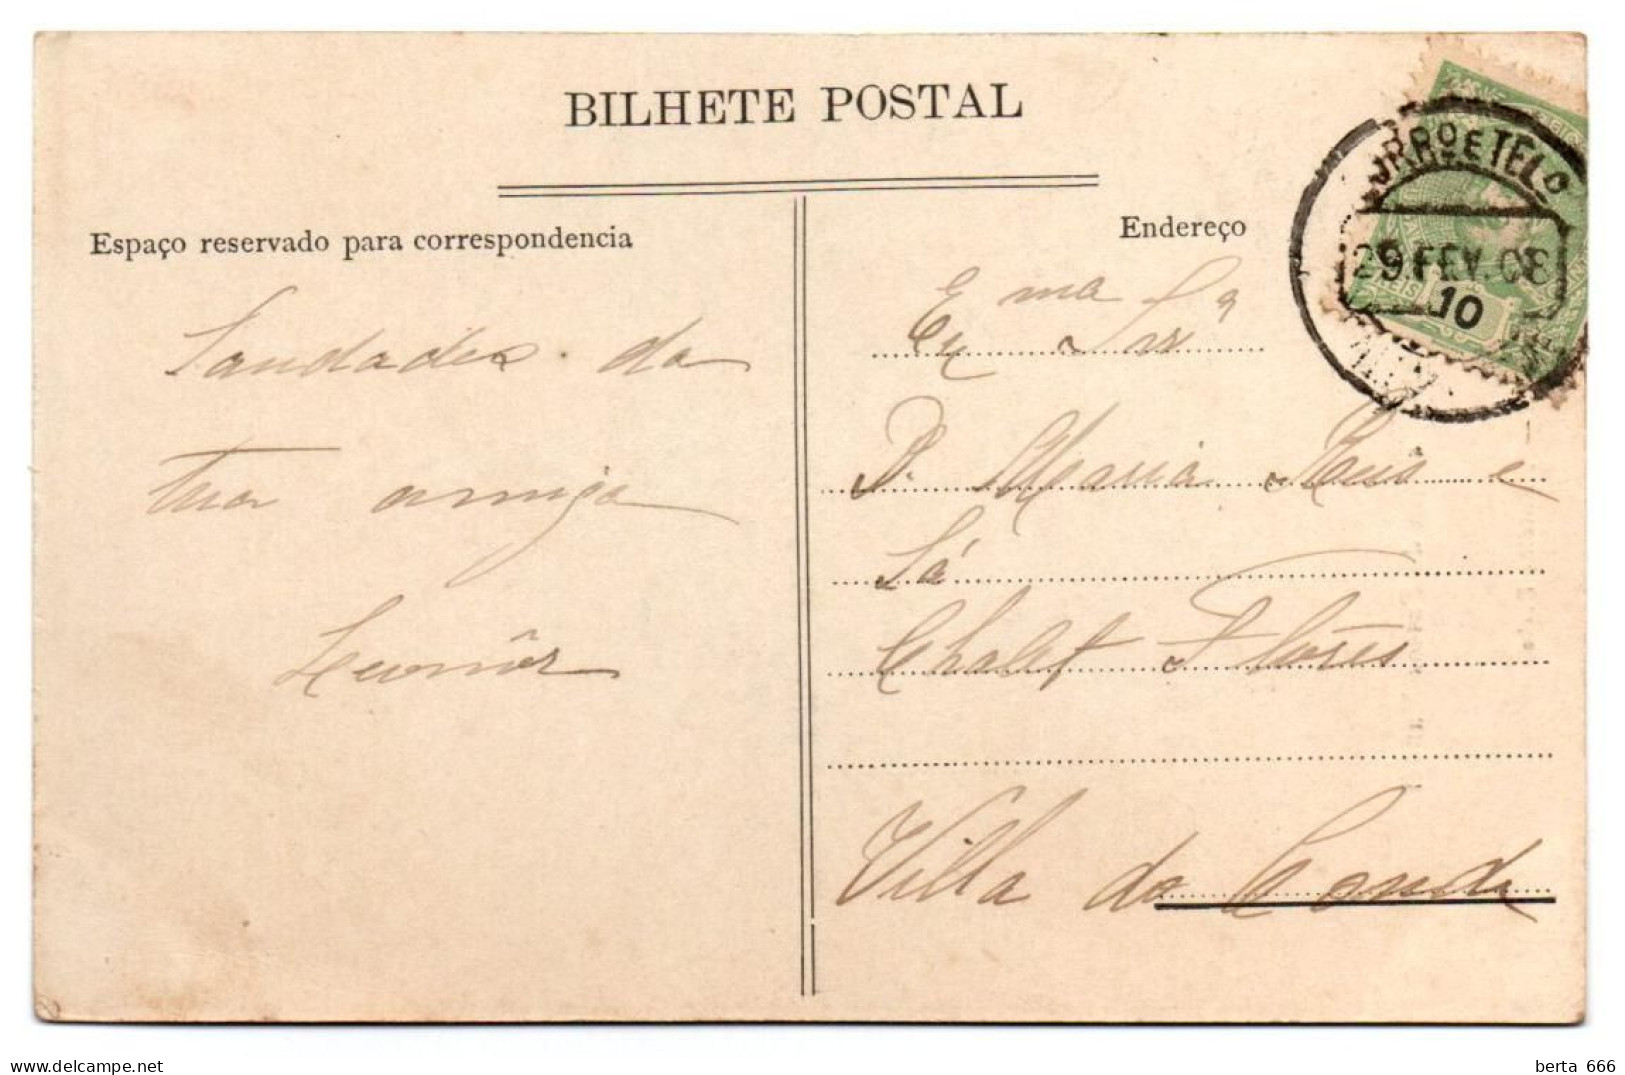 BILHETE POSTAL
Espaço reservado para correspondencia
Saudades da
tua amiga
Leonôr
Endereço
Ex ma Sr a
D. Maria Reis e
Sá
Chalet Flôres
Villa do Conde
RRO E TEL
29. FEV. 08
10
berta 666